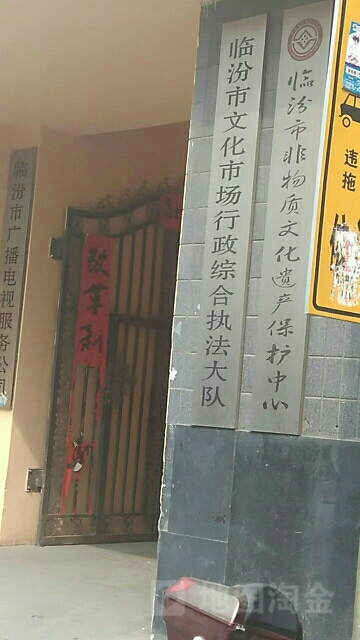 临汾市广播电视服务公司
改革新
临汾市文化市场行政综合执法大队
临汾市非物质文化遗产保护中心
违
拖
地图淘金